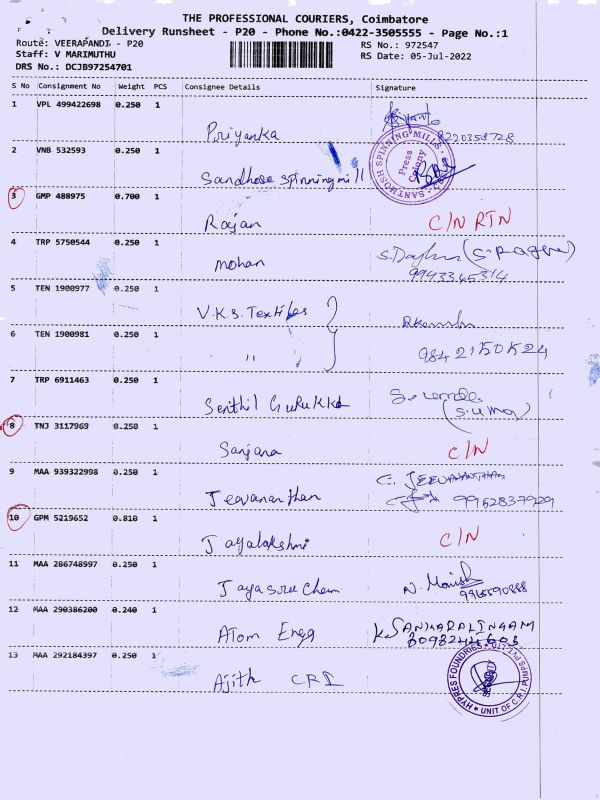 THE PROFESSIONAL COURIERS, Coimbatore
Delivery Runsheet - P20 - Phone No.:0422-3505555 - Page No.:1
Route: VEERAPANDI - P20
Staff: V MARIMUTHU
DRS No.: DCJB97254701
RS No.: 972547
RS Date: 05-Jul-2022
S No Consignment No Weight PCS Consignee Details Signature
1 VPL 499422698 0.250 1
Priyanka
2 VNB 532593 0.250 1
Sandhose Spinning mill
SANTHOSH SPINNING MILLS
Press Colony
3 GMP 488975 0.700 1
Rajan C/N RTN
4 TRP 5750544 0.250 1
mohan
9943345314
5 TEN 1900977 0.250 1
V.K.S. Textiles
6 TEN 1900981 0.250 1
"
9842150524
7 TRP 6911463 0.250 1
Senthil Gurukkal
(Suma)
8 TNJ 3117969 0.250 1
Sanjana C/N
9 MAA 939322998 0.250 1
Jeevananthan C. JEEVANANTHAM
9952837929
10 GPM 5219652 0.810 1
Jayalakshmi C/N
11 MAA 286748997 0.250 1
Jayasuru Chem N. Manish
9965590888
12 MAA 290386200 0.240 1
Atom Engg K. SANKARALINGAM
13 MAA 292184397 0.250 1
Ajith CRI
HYPRES FOUNDRIES
UNIT OF C.R.I. PUMPS PVT. LTD